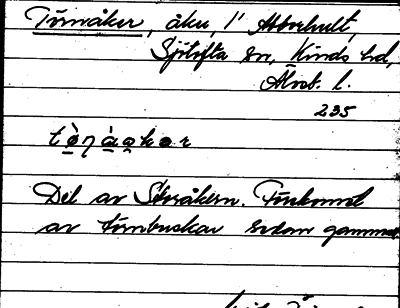 Törnåker, åker, i Abborhult,
Sjötofta sn, Kinds hd,
Älvsb. l.
235
Del av Storåkern. Förekomst
av törnbuskar sedan gammalt